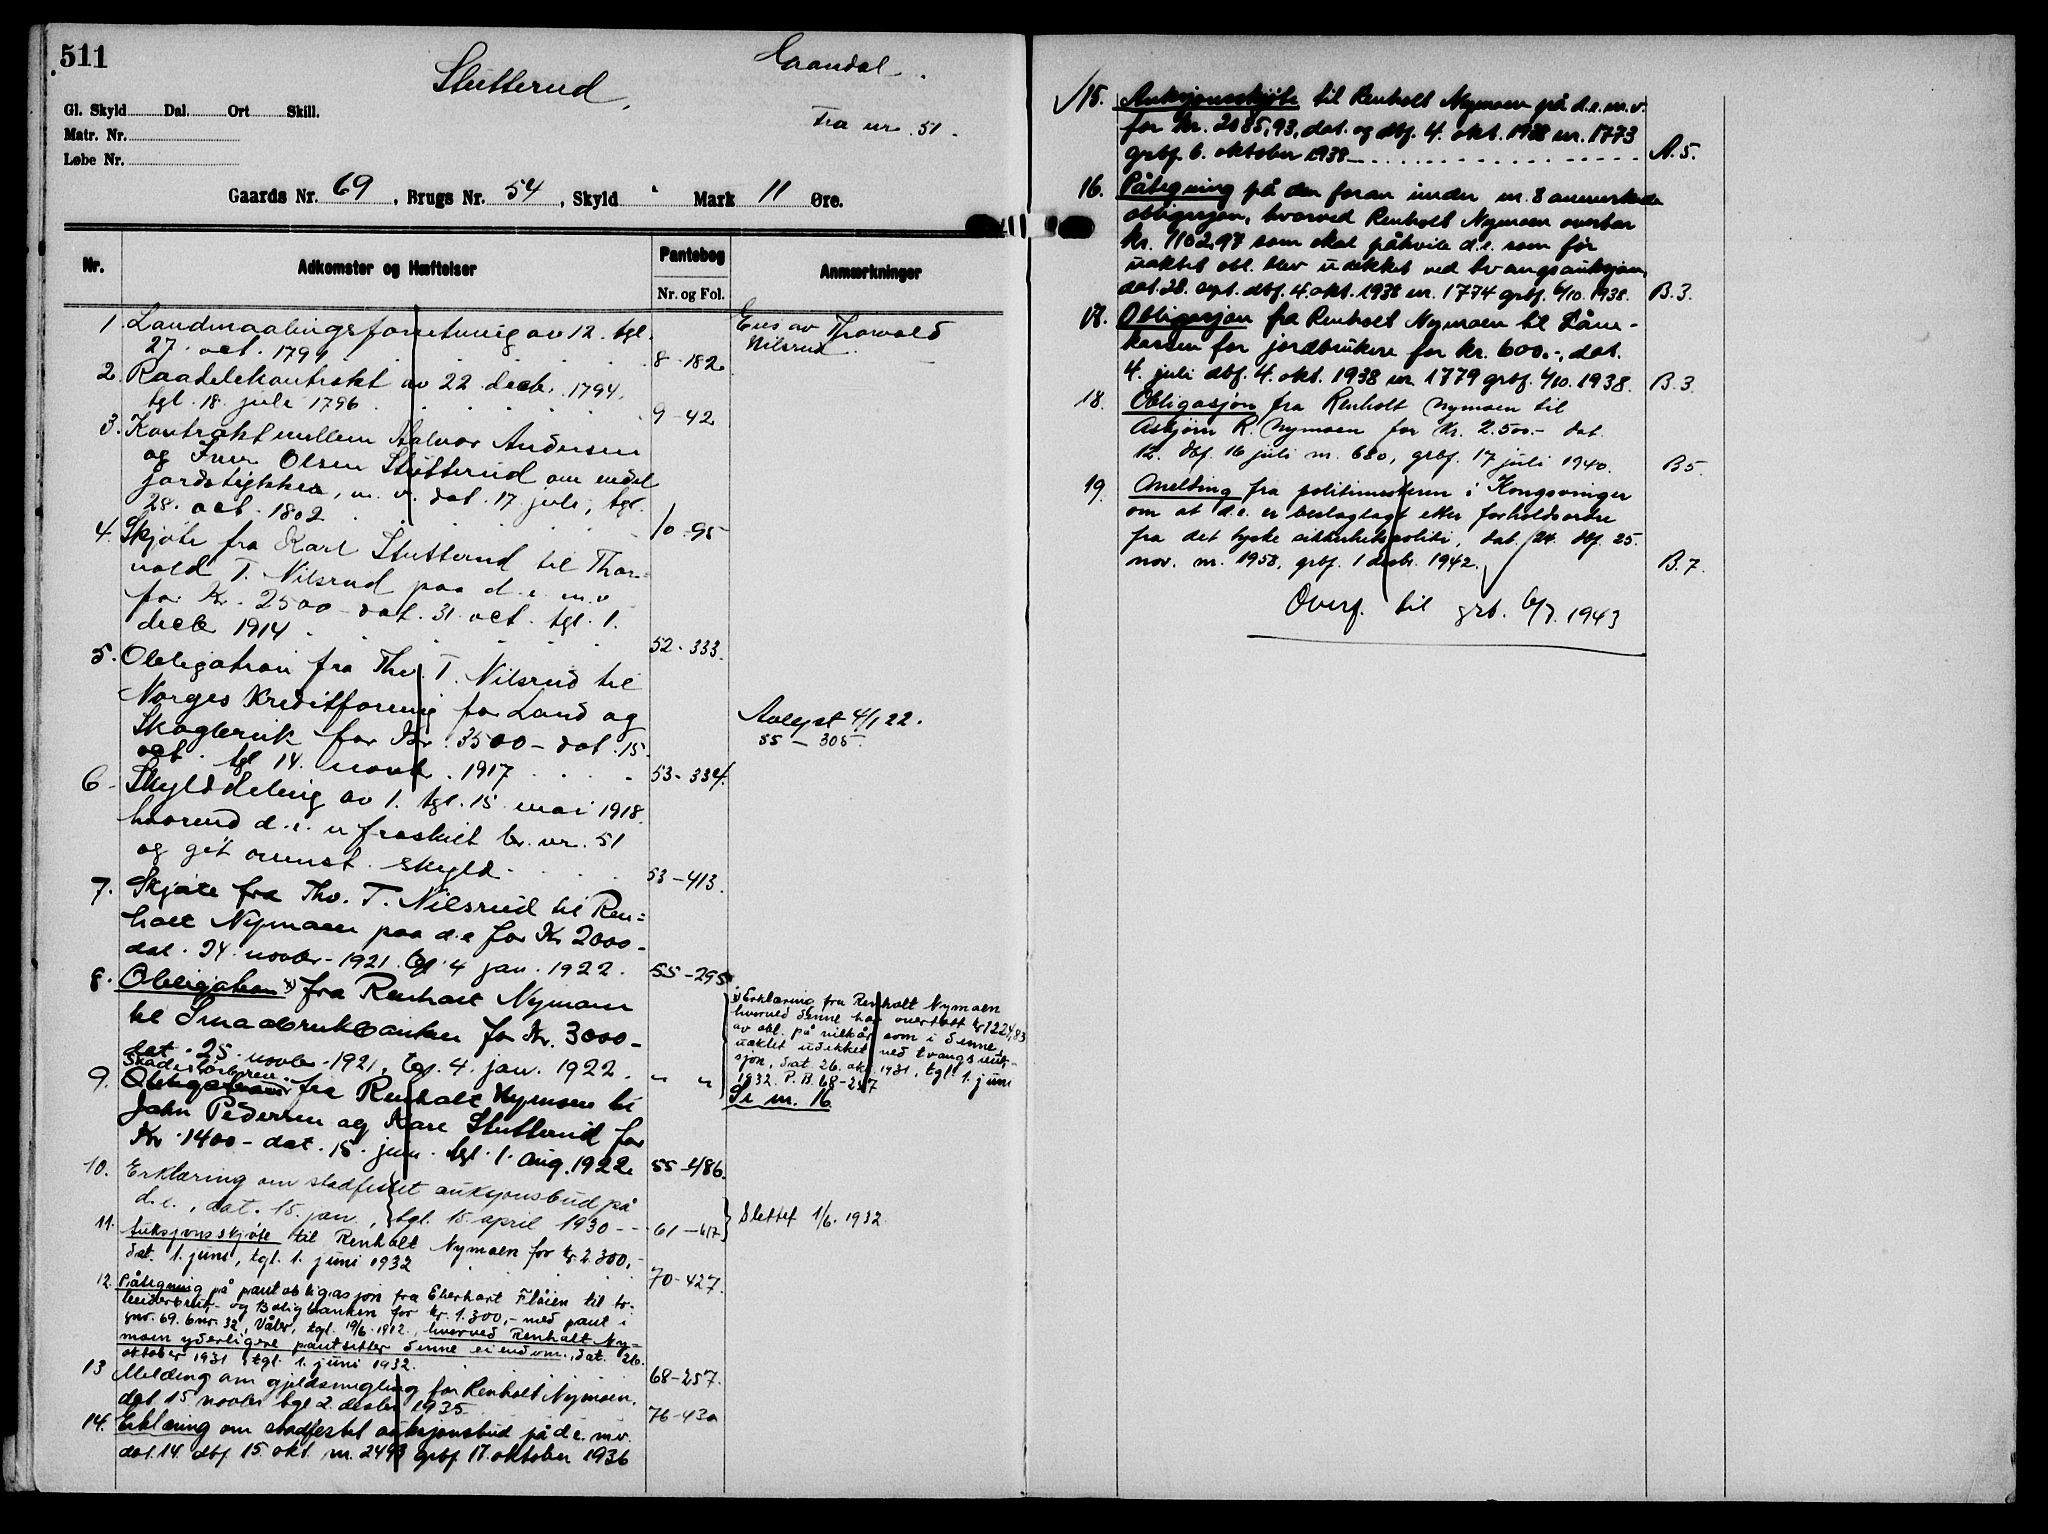 511
Stutterud.
Gl. Skyld Dal. Ort Skill.
Matr. Nr.
Løbe Nr.
Fra nr. 51.
Gaards Nr. 69, Brugs Nr. 54, Skyld Mark 11 Øre.
Nr.
Adkomster og Hæftelser
Pantebog
Nr. og Fol.
Anmærkninger
1. Landmaalingsforretning av 12. tgl.
27. oct. 1794 8-182
Eies av Thorvald
Nilsrud.
2. Raadelskontrakt av 22. decb. 1794,
tgl. 18. juli 1796 9-42
3. Kontrakt mellem Halvor Andersen
og Iver Olsen Stutterud om endel
jordstykker, m. v. dat. 17. juli, tgl.
28. oct. 1802 10-95
4. Skjøte fra Karl Stutterud til Thor=
vald T. Nilsrud paa d. e. m. v
for Kr. 2500 - dat. 31. oct. tgl. 1.
decb 1914 52-333.
5. Obligation fra Thv. T. Nilsrud til
Norges Kreditforening for Land og
Skogbruk for Kr. 3500 - dat. 15.
oct. tgl 14. novb. 1917 53-334.
Avlyst 4/1 22.
55 - 305.
6. Skylddeling av 1. tgl. 15. mai 1918
hvorved d. e. er fraskilt br. nr. 51
og git ovennst. skyld. 53-413.
7. Skjøte fra Thv. T. Nilsrud til Ren=
holt Nymoen paa d.e for Kr 2000-
dat. 24. novbr. 1921. tgl 4 jan. 1922. 55-295
8. Obligation x) fra Renholt Nymoen
til Smaabrukbanken for Kr. 3000-
dat. 25. novbr. 1921, tgl. 4. jan. 1922. " "
x) Erklæring fra Renholt Nymoen
hvorved denne har overtatt kr 1224,83
av obl. på vilkår som i denne,
uaktet udekket ved tvangsauk-
sjon, dat. 26. okt. 1931, tgl. 1. juni
1932. P. B. 68-257
Se nr. 16
9. Skadesløsbrev fra Renholt Nymoen til
John Pedersen og Kare Stutterud for
Kr. 1400 - dat. 15. juni. tgl. 1. aug. 1922 55-486.
10. Erklæring om stadfestet auksjonsbud på
d.e., dat. 15. jan., tgl. 15. april 1930 - - 61-617
Slettet 1/6. 1932
11. Auksjonsskjøte til Renholt Nymoen for kr 2.300,-
dat. 1. juni, tgl. 1. juni 1932 70-427.
12. Påtegning på pantobligasjon fra Eberhart Flåien til Ar-
beiderbruk- og Boligbanken for kr. 1.300,- med pant i
gnr. 69. bnr. 32, Våler, tgl. 19/6. 1912, hvorved Renholt Ny-
moen yderligere pantsetter denne eiendom., dat. 26.
oktober 1931, tgl. 1. juni 1932. 68-257.
13 Melding om gjeldsmegling for Renholt Nymoen.
dat. 15 novbr tgl 2. desbr 1935. 76-430
14. Erklæring om stadfestet auksjonsbud på d e. m.v.
dat. 14. dbf 15. okt. nr. 2493 grbf 17. oktober 1936
15. Auksjonsskjøte til Renholt Nymoen på d.e.m.v.
for kr. 2085,93, dat. og dbf. 4. okt. 1938 nr. 1773
grbf. 6. oktober 1938 A. 5.
16. Påtegning på den foran under nr. 8 anmerkede
obligasjon, hvorved Renholt Nymoen overtar
kr. 1102,97 som skal påhvile d.e. som før
uaktet obl. blev udekket ved tvangsauksjon,
dat. 28. sept. dbf. 4. okt. 1938 nr. 1774 grbf. 6/10. 1938. B. 3.
17. Obligasjon fra Renholt Nymoen til Låne-
kassen for jordbrukere for kr. 600.-, dat.
4. juli dbf. 4. okt. 1938 nr. 1779 grbf. 6/10. 1938. B. 3
18. Obligasjon fra Renholt Nymoen til
Asbjørn R. Nymoen for kr. 2.500.- dat.
12. dbf 16 juli nr. 680, grbf. 17 juli 1940. B 5.
19. Melding fra politimesteren i Kongsvinger
om at d.e. er beslaglagt etter forholdsordre
fra det tyske sikkerhetspoliti, dat. 24. dbf. 25.
nov. nr. 1958, grbf. 1 desbr. 1942. B. 7.
Overf. til grb. 6/7. 1943